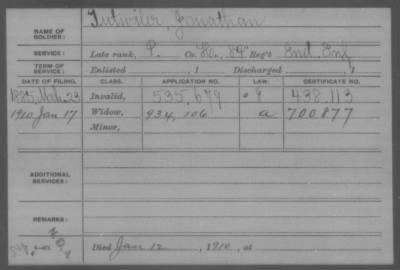 NAME OF SOLDIER: Tidwiler, Jonathan
SERVICE: Late rank, P. Co. 84" Reg't Ind. Inf
TERM OF SERVICE: Enlisted , 1 Discharged , 1
DATE OF FILING. CLASS. APPLICATION NO. LAW. CERTIFICATE NO.
1885, Mch. 23 Invalid, 535,679 438,113
1910 Jan 17 Widow, 934,106 a 700877
Minor,
ADDITIONAL SERVICES:
REMARKS:
Died Jan 12, 1910, at